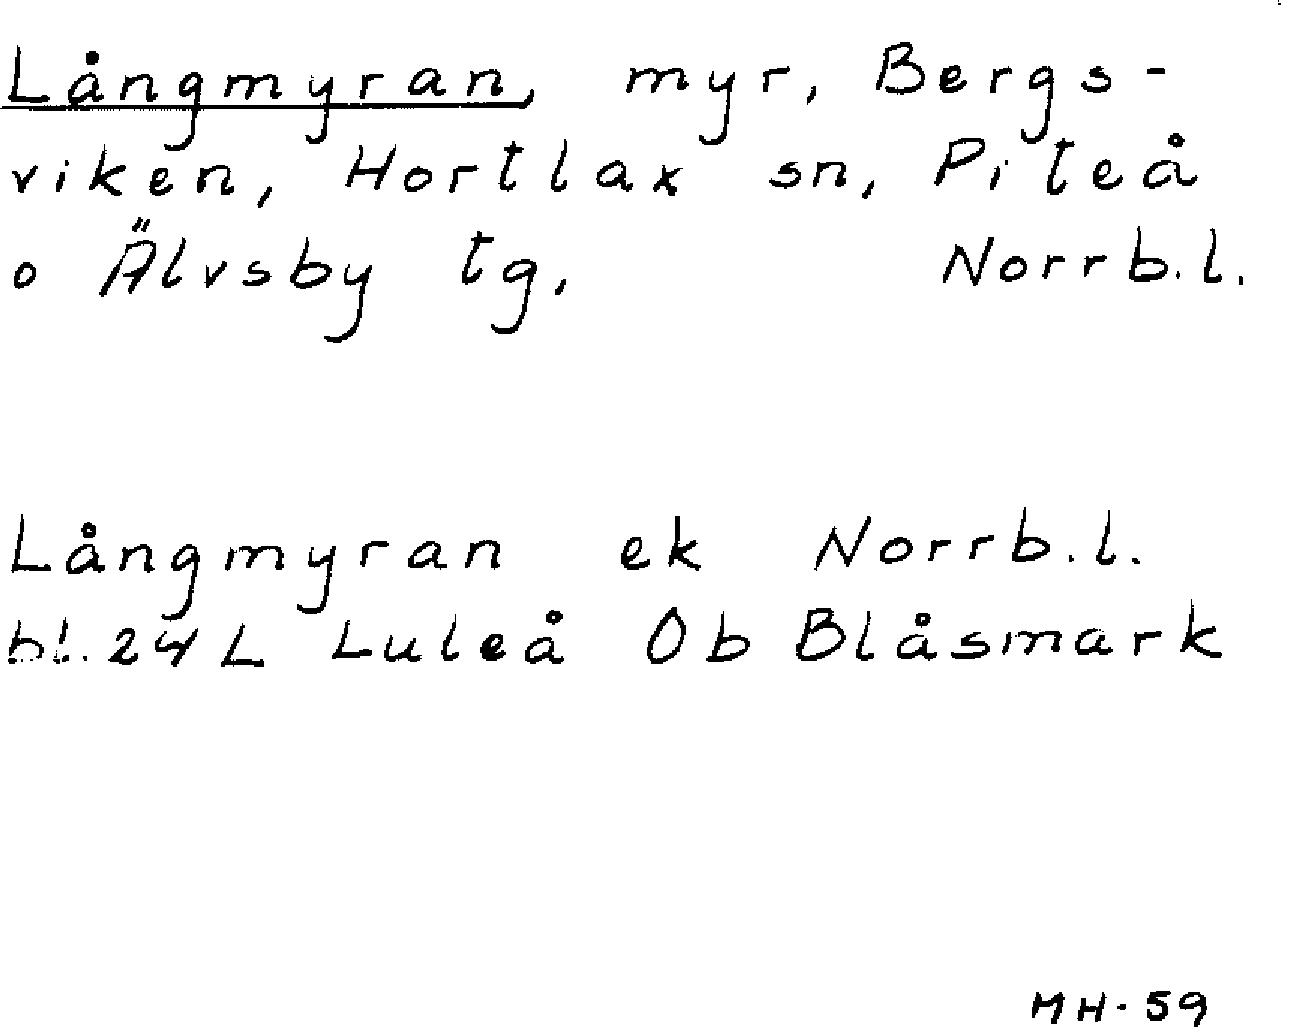 Långmyran, myr, Bergs-
viken, Hortlax sn, Piteå
o Älvsby tg, Norrb.l.
Långmyran ek Norrb.l.
bl. 24 L Luleå Ob Blåsmark
MH-59